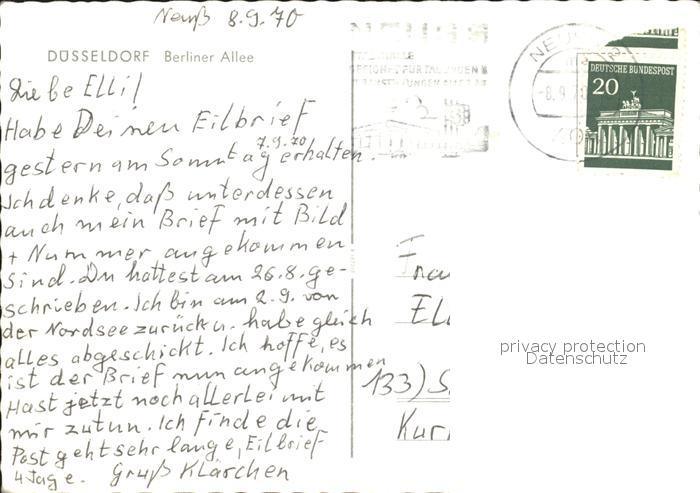 Neuß 8.9.70
DÜSSELDORF Berliner Allee
Liebe Elli!
Habe Deinen Eilbrief
7.9.70
gestern am Sonntag erhalten.
Ich denke, daß unterdessen
auch mein Brief mit Bild
+ Nummer angekommen
sind. Du hattest am 26.8. ge-
schrieben. Ich bin am 2.9. von
der Nordsee zurück u. habe gleich
alles abgeschickt. Ich hoffe, es
ist der Brief nun angekommen
Hast jetzt noch allerlei mit
mir zutun. Ich finde die
Post geht sehr lange, Eilbrief
4 Tage. Gruß Klärchen
NEUSS
NEU
-8.9.70
DEUTSCHE BUNDESPOST
20
Frau
Ell
133) S
Kur
privacy protection
Datenschutz